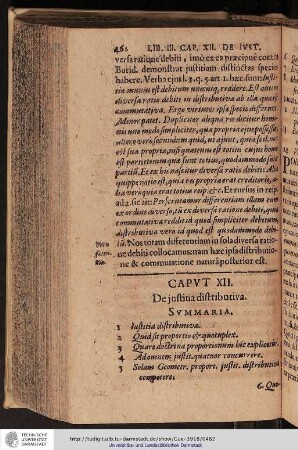 462 LIB. III. CAP. XII. DE IVST.
versa ratione debiti, imò ex ea præcipuè contra
Burid. demonstrat justitiam distinctas species
habere. Verba ejus l. 2. q. 5. art. 1. hæc sunt: Justi-
tia munus est debitum unicuiq; reddere. Est autem
diversa ratio debiti in distributiva ab illa quæ est
commutativa. Ergo virtutes ipsæ specie differunt.
Minor patet. Dupliciter aliquid re dicitur homi-
nis uno modo simpliciter, quia propria ejus possessio,
altero verò secundum quid,
rii sua propria, jus quatenus
est partitionem quæ sunt totius, quodammodo sunt
partiū. Et ex his nascitur diversa ratio debiti: Ali-
quippe ratio est, quia res propria erat creditoris, a-
lia verò quia erat totius reip. &c. Et rursus in resp.
ad 2. sic ait: Perscrutamur differentiam illam tum
ex ordine diverso, tū ex diversa ratione debiti, quia
commutativa reddit id quod simpliciter debitum,
distributiva verò id quod est quodammodo debi-
tū. Nos totam differentiam in sola diversa ratio-
ne debiti collocamus: nam hæc ipsa distributio-
ne & commutatione naturâ posterior est.
CAPVT XII.
De justitia distributiva.
SVMMARIA.
1 Iustitia distributiva.
2 Quid sit proportio & quotuplex.
3 Quare doctrina proportionum hîc explicetur.
4 Ad omnem justit. quatuor concurrere.
5 Solam Geometr. proport. justit. distributivæ
competere.
6. Quo-
http://tudigit.ulb.tu-darmstadt.de/show/Gue-3918/0482
Universitäts- und Landesbibliothek Darmstadt